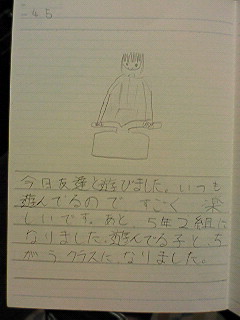 -4 5
今日友達と遊びました。いつも
遊んでるので すごく 楽
しいです。あと、5年2組に
なりました。遊んでる子と、ち
がう クラスに なりました。